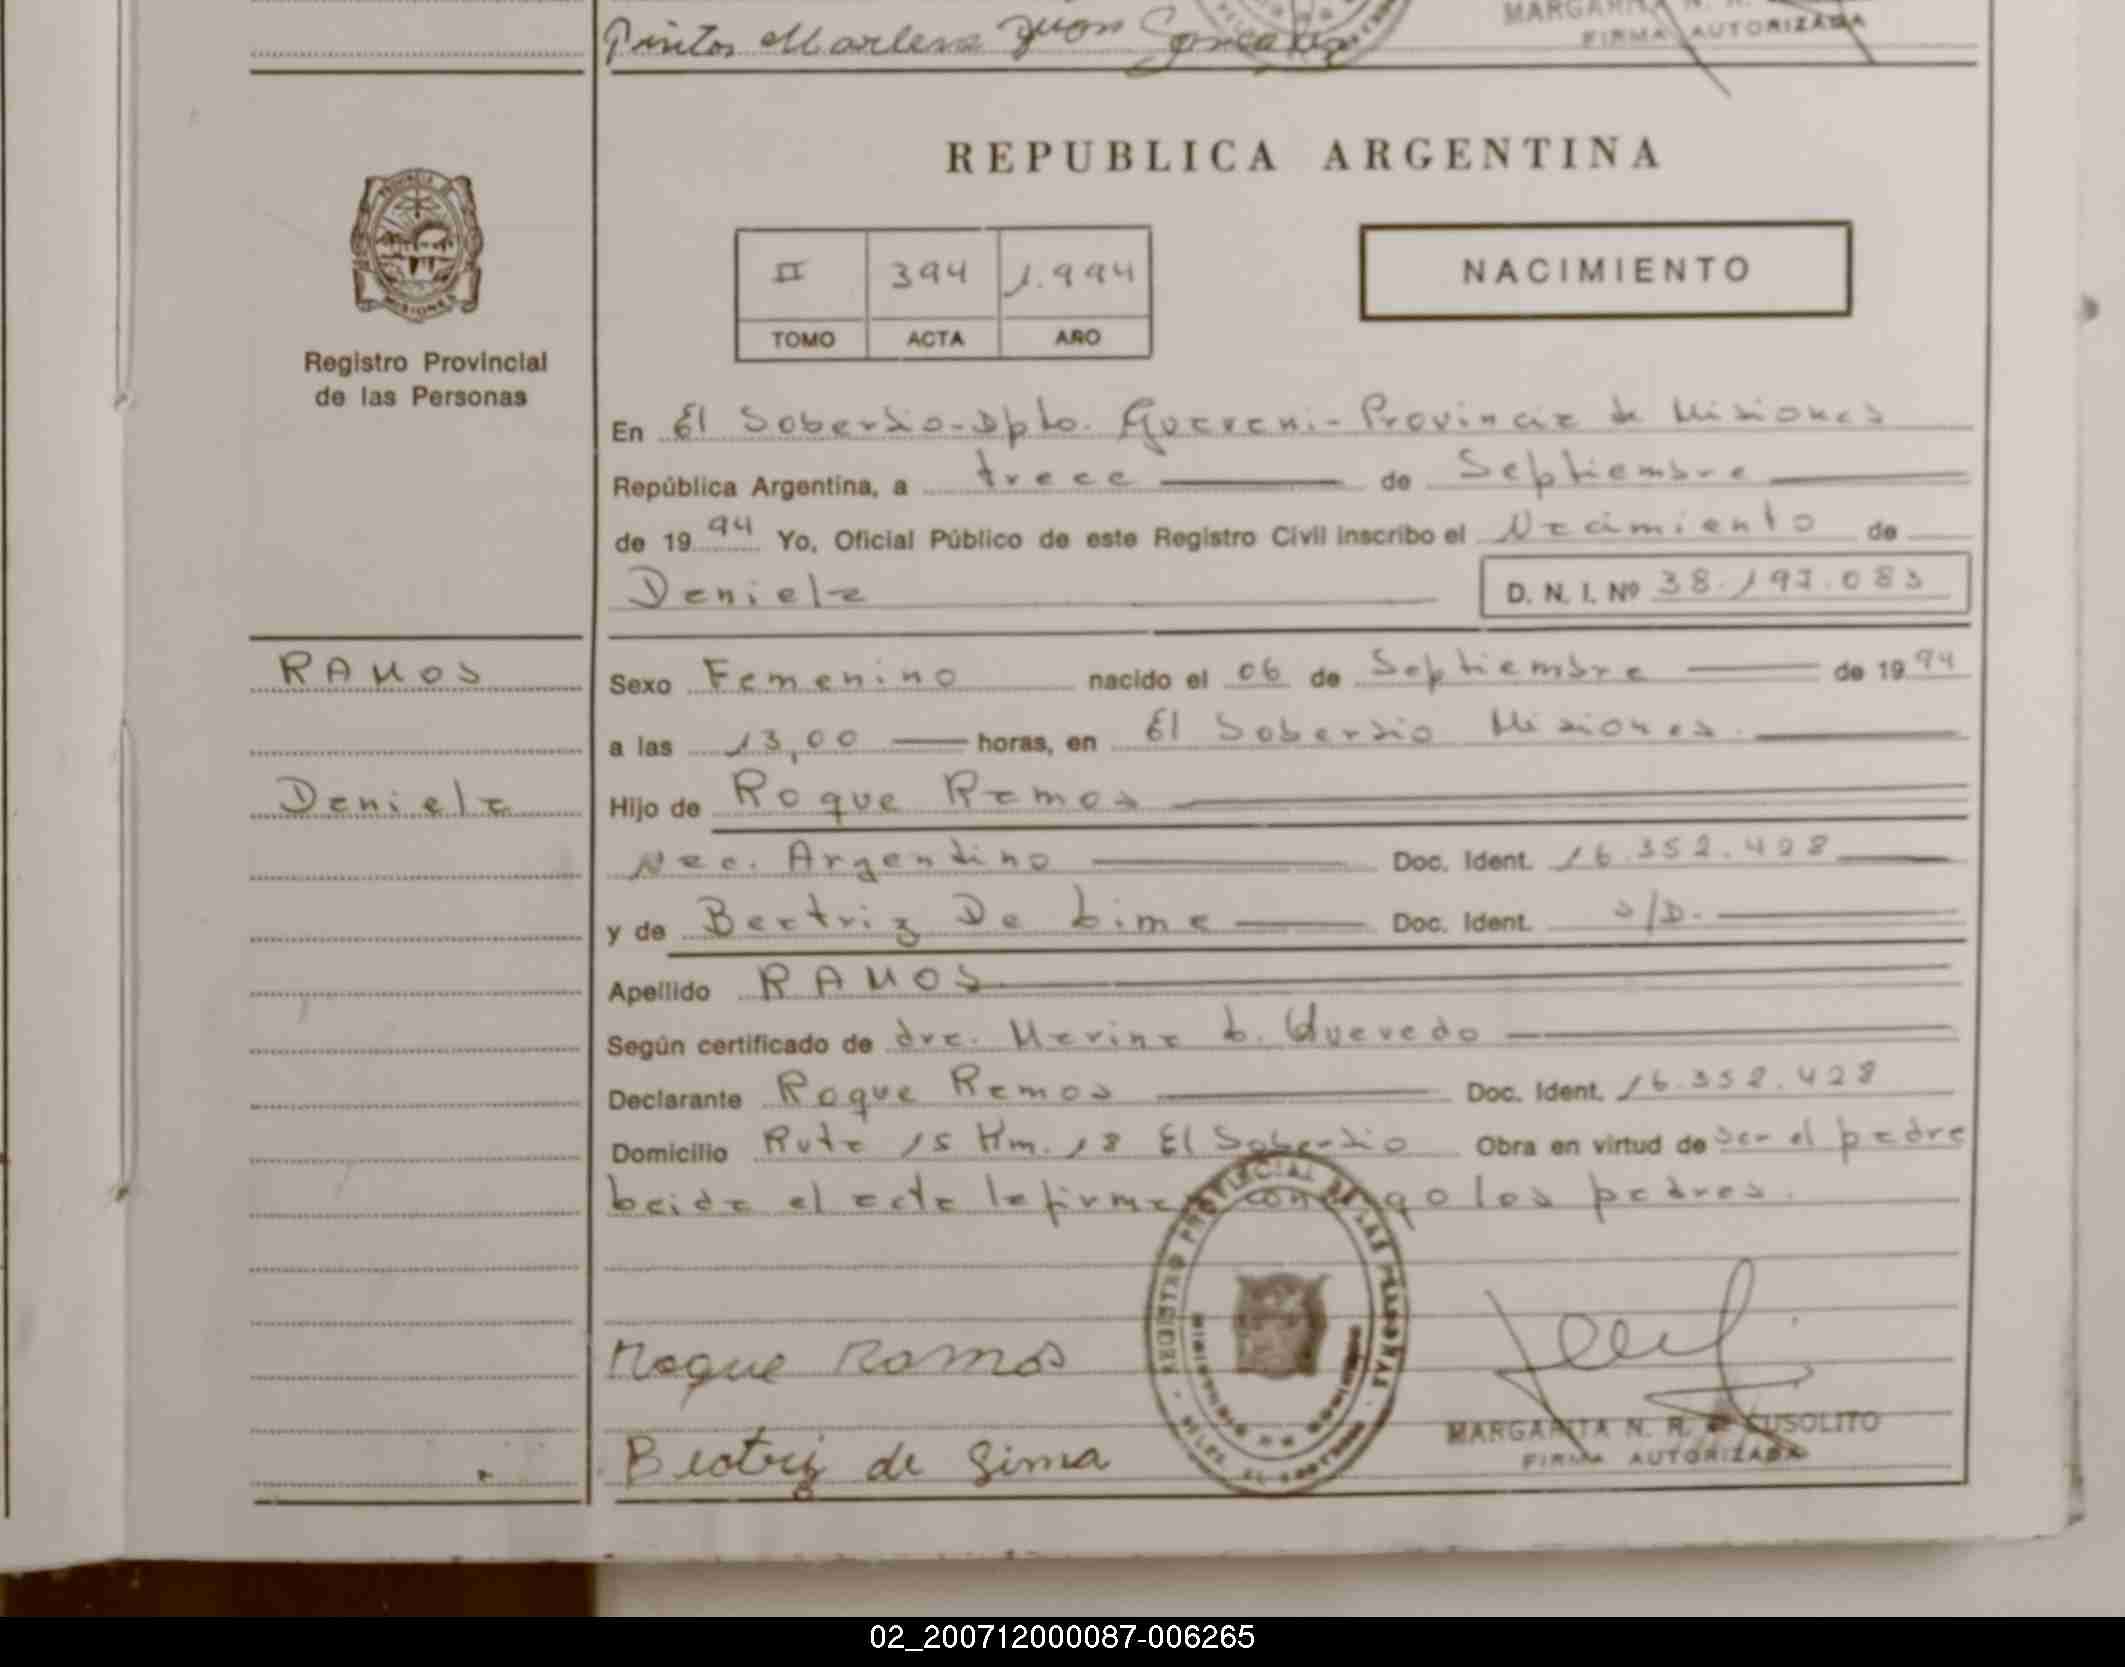 Pintos Marlene Juan Gonzalez
MARGARITA N. R.
FIRMA AUTORIZADA
REPUBLICA ARGENTINA
II 394 1.994
TOMO ACTA AÑO
NACIMIENTO
PROVINCIA
MISIONES
Registro Provincial
de las Personas
En El Soberbio-Dpto. Guarani-Provincia de Misiones
República Argentina, a trece de Septiembre
de 19 94 Yo, Oficial Público de este Registro Civil inscribo el Nacimiento de
Daniela D. N. I. Nº 38.197.083
RAMOS
Daniela
Sexo Femenino nacido el 06 de Septiembre de 19 94
a las 13,00 horas, en El Soberbio Misiones.
Hijo de Roque Ramos
Nac. Argentino Doc. Ident. 16.352.428
y de Beatriz De Lima Doc. Ident. S/D.
Apellido RAMOS
Según certificado de dra. Marina L. Quevedo
Declarante Roque Ramos Doc. Ident. 16.352.428
Domicilio Ruta 15 Km. 18 El Soberbio Obra en virtud de ser el padre
Leida el acta la firman conmigo los padres.
REGISTRO PROVINCIAL DE LAS PERSONAS
Roque Ramos
Beatriz de Lima
MARGARITA N. R. CUSOLITO
FIRMA AUTORIZADA
02_200712000087-006265